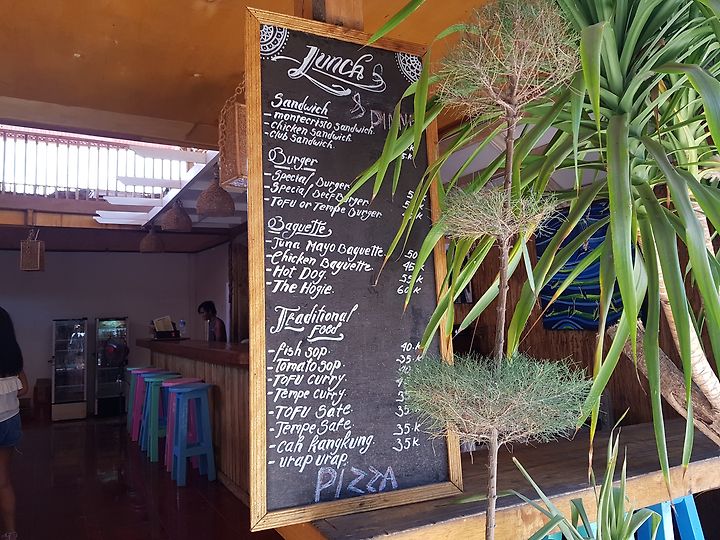 Lunch &
& DINNE
Sandwich
- montecristo Sandwich.
- Chicken Sandwich
- Club Sandwich 5k
Burger
- Special Burger
- Special Beef Burger
- TOFU or Tempe Burger
Baguette
- Tuna Mayo Baguette 50
- Chicken Baguette 45k
- Hot Dog. 55k
- The Hogie. 60k
Traditional
Food
- fish sop. 40.k
- Tomato sop 35k
- TOFU curry. 4
- Tempe curry. 35
- TOFU Sate 35
- Tempe Sate. 35k
- cah kangkung. 35k
- urap urap.
PIZZA